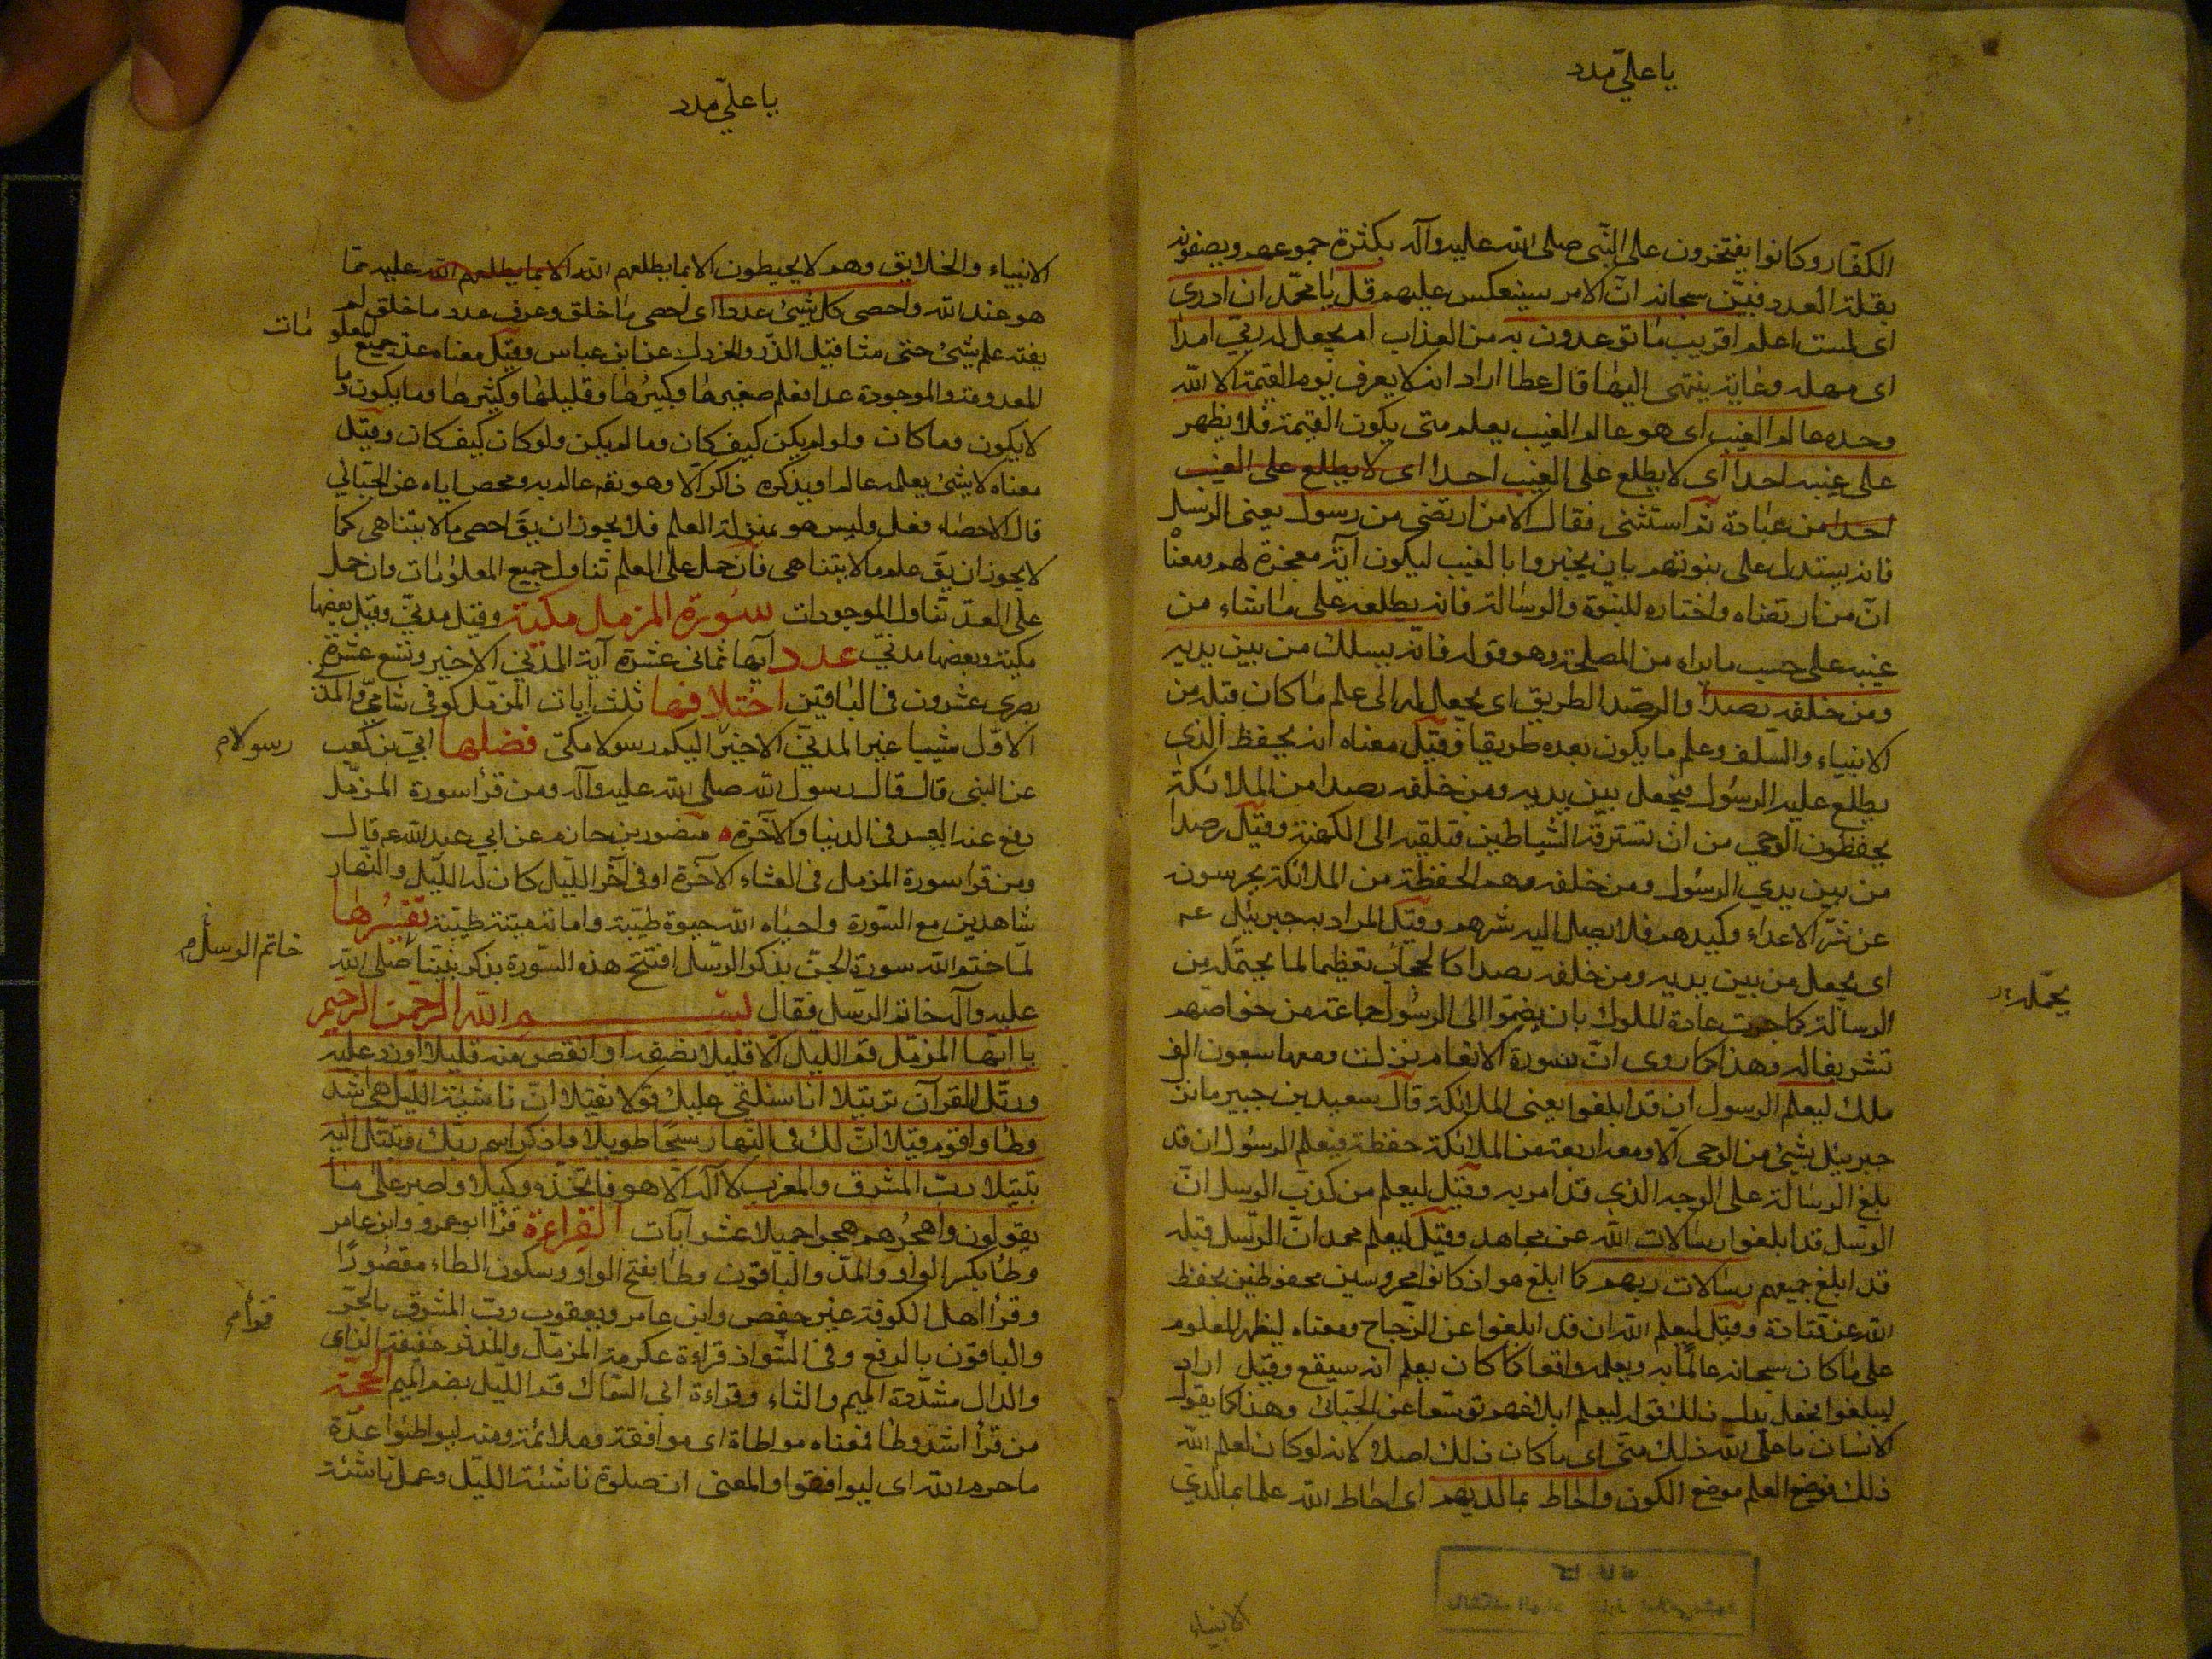 يا عليّ مدد
الكفار وكانوا يفتخرون على النبى صلى الله عليه وآله بكثرة جموعهم ويصفونه
بقلة العدد فبيّن سبحانه انّ الامر سينعكس عليهم قل يا محمّد ان ادرى
اى لست اعلم اقريب ما توعدون به من العذاب ام يجعل له ربّي امدا
اى مهلة وغاية ينتهى اليها قال عطا اراد انه لا يعرف يوم القيمة الا الله
وحده عالم الغيب اى هو عالم الغيب يعلم متى يكون القيمة فلا يظهر
على غيبه احدا اى لا يطلع على الغيب احدا اى لا يطلع على الغيب
احدا من عباده ثم استثنى فقال الا من ارتضى من رسول يعنى الرسل
فانه يستدل على نبوتهم بان يخبروا بالغيب ليكون آية معجزة لهم ومعناه
انّ من ارتضاه واختاره للنبوة والرسالة فانه يطلعه على ما شاء من
غيبه على حسب ما يراه من المصلحة وهو قوله فانه يسلك من بين يديه
ومن خلفه رصدا والرصد الطريق اى يجعل له الى علم ما كان قبله من
الانبياء والسلف وعلم ما يكون بعده طريقا وقيل معناه انه يحفظ الذي
يطلع عليه الرسول فيجعل بين يديه ومن خلفه رصدا من الملائكة
يحفظون الوحي من ان تسترقه الشياطين فتلقيه الى الكهنة وقيل رصدا
من بين يدي الرسول ومن خلفه وهم الحفظة من الملائكة يحرسونه
عن شرّ الاعداء وكيدهم فلا يصل اليه شرهم وقيل المراد به جبرئيل عه
اى يجعل من بين يديه ومن خلفه رصدا كالحجاب تعظيما لما يحتمله من
يحمّله
الرسالة كما جرت عادة الملوك بان يضموا الى الرسول جماعة من خواصهم
تشريفا له وهذا كما روى انّ سورة الانعام نزلت ومعها سبعون الف
ملك ليعلم الرسول ان قد ابلغوا يعنى الملائكة قال سعيد بن جبير ما نزل
جبرئيل بشئ من الوحى الا ومعه اربعة من الملائكة حفظة فيعلم الرسول ان قد
بلغ الرسالة على الوجه الذي قد امر به وقيل ليعلم من كذب الرسل انّ
الرسل قد ابلغوا رسالات الله عن مجاهد وقيل ليعلم محمد انّ الرسل قبله
قد ابلغ جميعهم رسالات ربهم كما ابلغ هو اذ كانوا محروسين محفوظين بحفظ
الله عن قتادة وقيل ليعلم الله ان قد ابلغوا عن الزجاج ومعناه ليظهر المعلوم
على ما كان سبحانه عالما به ويعلمه واقعا كما كان يعلم انه سيقع وقيل اراد
ليبلغوا فجعل بدل ذلك قوله ليعلم ابلاغهم توسّعا عن الجبّائى وهذا كما يقول
الانسان ما علم الله ذلك منّى اى ما كان ذلك اصلا لانه لو كان لعلم الله
ذلك فوضع العلم موضع الكون واحاط بما لديهم اى احاط الله علما بما لدي
الانبياء
يا عليّ مدد
الانبياء والخلايق وهم لا يحيطون الا بما يطلعهم الله الا بما يطلعهم الله عليه ممّا
هو عند الله واحصى كل شئ عددا اى احصى ما خلق وعرف عدد ما خلق لم
يفته علم شئ حتى مثاقيل الذر والخردل عن ابن عباس وقيل معناه عدّ جميع المعلو مات
المعدومة والموجودة عدا فعلم صغيرها وكبيرها وقليلها وكثيرها وما يكون وما
لا يكون وما كان ولو لم يكن كيف كان وما لم يكن ولو كان كيف كان وقيل
معناه لا شئ يعلمه عالم او يذكره ذاكر الّا وهو تعٰ عالم به ومحص اياه عن الجبّائي
قال الاحصاء فعل وليس هو بمنزلة العلم فلا يجوز ان يقٰ احصى ما لا يتناهى كما
لا يجوز ان يقٰ علم ما لا يتناهى فان حمل على العلم تناول جميع المعلومات وان حمل
على العدّ تناول الموجودات سورة المزمل مكية وقيل مدنيّ وقيل بعضها
مكية وبعضها مدنيّ عدد آيها ثمانى عشرة آية المدني الاخير وتسع عشرة
بصرى عشرون فى الباقين اختلافها ثلث ايات المزمّل كوفى شامي والمدني
الاوّل شيبا غير المدنيّ الاخير اليكم رسولا مكى فضلها ابيّ بن كعب
رسولا م
عن النبى قال قال رسول الله صلى الله عليه وآله ومن قرأ سورة المزمّل
رفع عنه العسر فى الدنيا والآخرة منصور بن حازم عن ابي عبد الله عه قال
ومن قرا سورة المزمل فى العشاء الآخرة او فى آخر الليل كان له الليل والنهار
شاهدين مع السّورة واحياه الله حيوة طيّبة واماته ميتة طيّبة تفسيرها
لمّا ختم الله سورة الجنّ بذكر الرسل افتتح هذه السّورة بذكر نبيّنا صلى الله
خاتم الرسل م
عليه وآله خاتم الرسل فقال بسم الله الرحمن الرحيم
يا ايّها المزمّل قم الليل الّا قليلا نصفه او انقص منه قليلا او زد عليه
ورتّل القرآن ترتيلا انا سنلقى عليك قولا ثقيلا انّ ناشئة الليل هى اشد
وطا واقوم قيلا انّ لك فى النهار سبحا طويلا واذكر اسم ربّك وتبتّل اليه
تبتيلا ربّ المشرق والمغرب لا آله الّا هو فاتخذه وكيلا واصبر على ما
يقولون واهجرهم هجرا جميلا عشر آيات القراءة قرأ ابو عمرو وابن عامر
وطأ بكسر الواو والمدّ والباقون وطأ بفتح الواو وسكون الطاء مقصورًا
وقرأ اهل الكوفة غير حفص وابن عامر ويعقوب ربّ المشرق بالجرّ
قرأ م
والباقون بالرفع وفى الشواذ قراءة عكرمة المزمّل والمدثر خفيفة الزاى
والدال مشدّدة الميم والثاء وقراءة ابى السّماك قم الليل بضم الميم الحجة
من قرأ اشد وطأ فمعناه مواطاة اى موافقة وملائمة ومنه ليواطئوا عدّة
ما حرم الله اى ليوافقوا والمعنى ان صلوة ناشئة الليل وعمل ناشئة